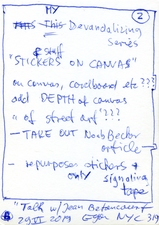 MY
This Devandalizing
Series
2
& staff
"STICKERS ON CANVAS"
on canvas, cardboard etc ???
add DEPTH of canvas
of street art???
— TAKE OUT Noah Becker
article
— repurposed stickers &
only signaling
tape
"Talk w/ Jean Betancourt
29 VI 2019 NYC